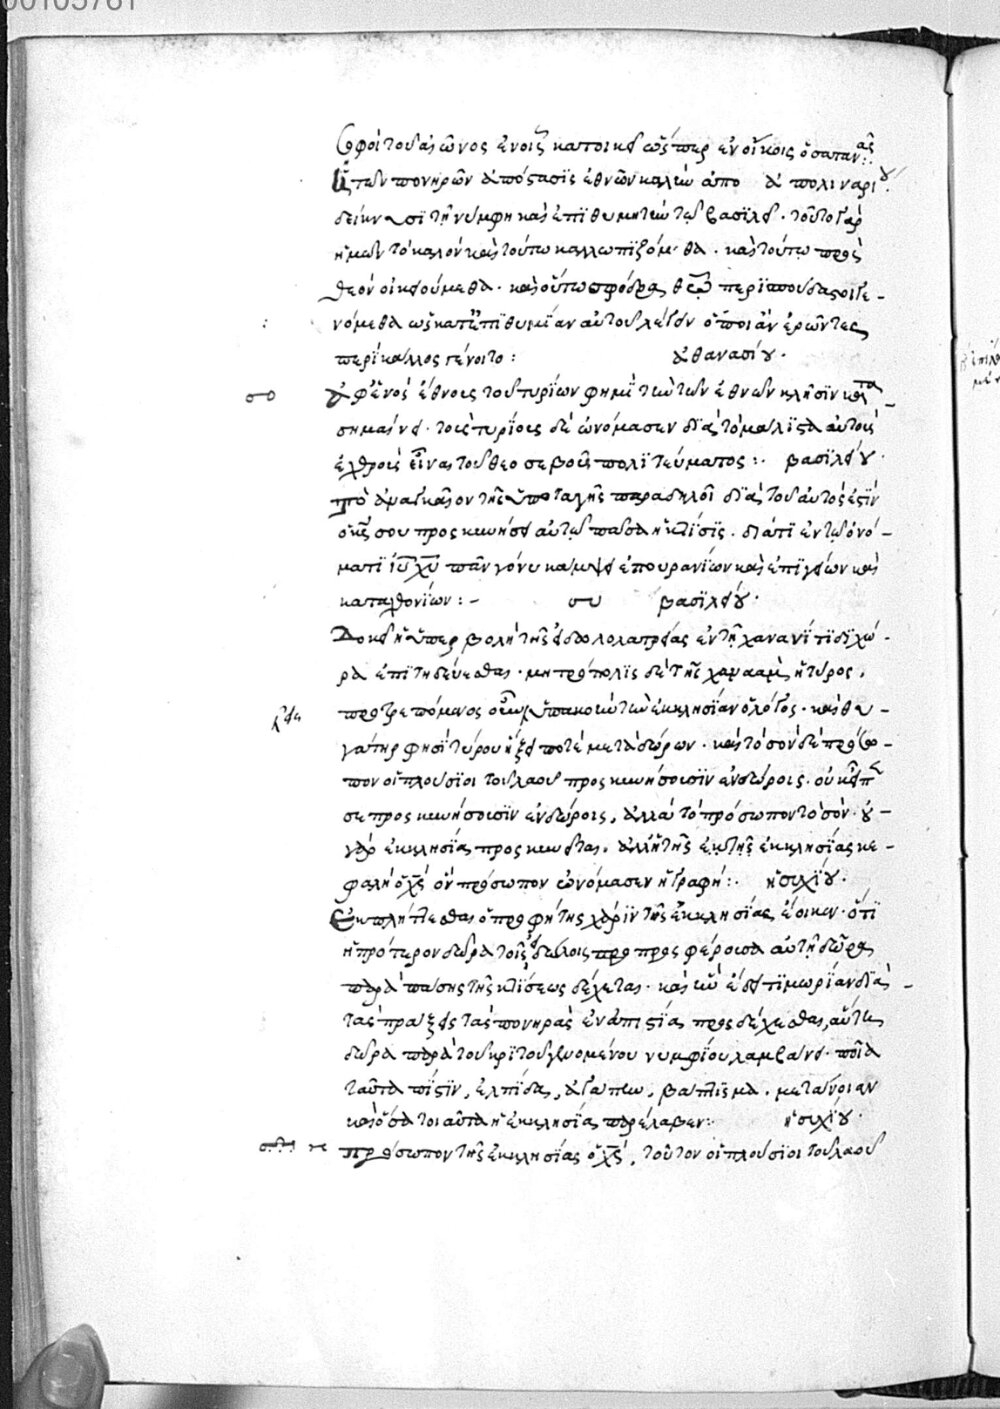 σοφοὶ τοῦ αἰῶνος ἐν οἷς κατοικεῖ ὥσπερ ἐν οἴκοις ὁ σατανᾶς:
τῶν πονηρῶν ἀπόστασις ἐθνῶν καλεῖ ἀπο ἀπολιναρίου.
δείκνυσι τῇ νύμφῃ καὶ ἐπιθυμητῶ τῷ βασιλεῖ. τοῦτο γὰρ
ἡμῶν τὸ καλὸν καὶ τούτω καλλωπιζόμεθα. καὶ τούτω πρὸς
θεὸν οἰκειούμεθα. καὶ οὕτω σφόδρα θεῶ περισπούδαστοι γε-
νόμεθα ὡς κατ' ἐπιθυμίαν αὐτοῦ λέγειν ὁποῖ ἂν ἐρῶντες
περὶ κάλλος γένοιτο: ἀθανασίου.
σο ἀφ' ἑνὸς ἔθνους τοῦ τυρίων φημὶ τὴν τῶν ἐθνῶν κλῆσιν κατα-
σημαίνει. τοὺς τυρίους δὲ ὠνόμασεν διὰ τὸ μάλιστα αὐτοὺς
ἐχθροὺς εἶναι τοῦ θεοσεβοῦς πολιτεύματος: βασιλείου.
τὸ ἀναγκαῖον τῆς ὑποταγῆς παραδηλοῖ διὰ τοῦ αὐτός ἐστιν
ὁ κς σου προσκυνήσει αὐτῷ πᾶσα ἡ κτίσις. διότι ἐν τῷ ὀνό-
ματι ιυ χυ πᾶν γόνυ κάμψει ἐπουρανίων καὶ ἐπιγείων καὶ
καταχθονίων:- συ βασιλείου.
Δοκεῖ ἡ ὑπερβολὴ τῆς εἰδωλολατρείας ἐν τῇ χανανίτιδι χώ-
ρα ἐπιτηδεύεσθαι. μητρόπολις δὲ τῆς χαναὰν ἡ τύρος.
προτρεπόμενος οὖν εἰς ὑπακοὴν τὴν ἐκκλησίαν ὁ λόγος. καὶ θυ-
γάτηρ φησὶ τύρου ἥξει ποτὲ μετὰ δώρων. καὶ τὸ σὸν δὲ πρόσω-
πον οἱ πλούσιοι τοῦ λαοῦ προσκυνήσουσιν ἐν δώροις. οὐκ εἶπε
σε προσκυνήσουσιν ἐν δώροις, ἀλλὰ τὸ πρόσωπον τὸ σόν. οὐ
γὰρ ἐκκλησία προσκυνεῖται, ἀλλ' ἡ τῆς ἐκ τῆς ἐκκλησίας κε-
φαλὴ ὁ χς ὃν πρόσωπον ὠνόμασεν ἡ γραφή: ἡσυχίου.
Ἐκπλήττεσθαι ὁ προφήτης χάριν τῆς ἐκκλησίας ἔοικεν. ὅτι
ἡ πρότερον δῶρα τοῖς εἰδώλοις προσφέρουσα αὐτὴ δῶρα
παρὰ πάσης τῆς κτίσεως δέχεται. καὶ ἣν ἔδει τιμωρίαν διὰ
τὰς πράξεις τὰς πονηρὰς ἐν ἀπιστία προσδέχεσθαι, αὕτη
δῶρα παρὰ τοῦ κριτοῦ γενομένου νυμφίου λαμβάνει. ποῖα
ταῦτα πίστιν, ἐλπίδα, ἀγάπην, βάπτισμα. μετάνοιαν
καὶ ὅσα τοιαῦτα ἡ ἐκκλησία παρέλαβεν: ἡσυχίου.
πρόσωπον τῆς ἐκκλησίας ὁ χς, τοῦτον οἱ πλούσιοι τοῦ λαοῦ